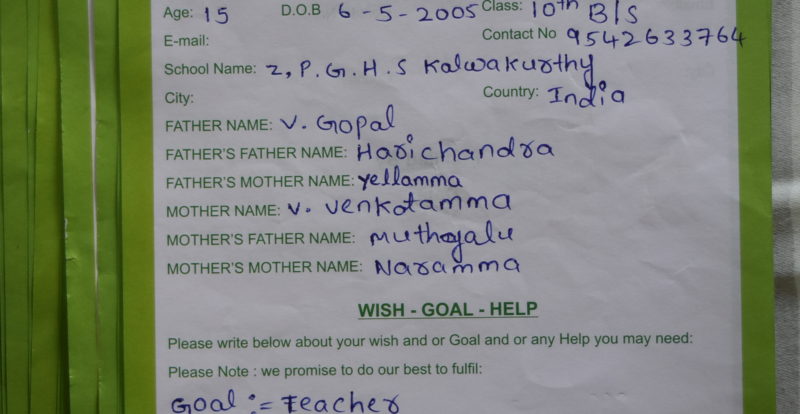 Age: 15 D.O.B 6-5-2005 Class: 10th B/S
E-mail: Contact No 9542633764
School Name: Z, P. G. H. S Kalwakurthy
City: Country: India
FATHER NAME: V. Gopal
FATHER'S FATHER NAME: Harichandra
FATHER'S MOTHER NAME: Yellamma
MOTHER NAME: V. Venkatamma
MOTHER'S FATHER NAME: Muthayalu
MOTHER'S MOTHER NAME: Naramma
WISH - GOAL - HELP
Please write below about your wish and or Goal and or any Help you may need:
Please Note : we promise to do our best to fulfil:
Goal := Teacher